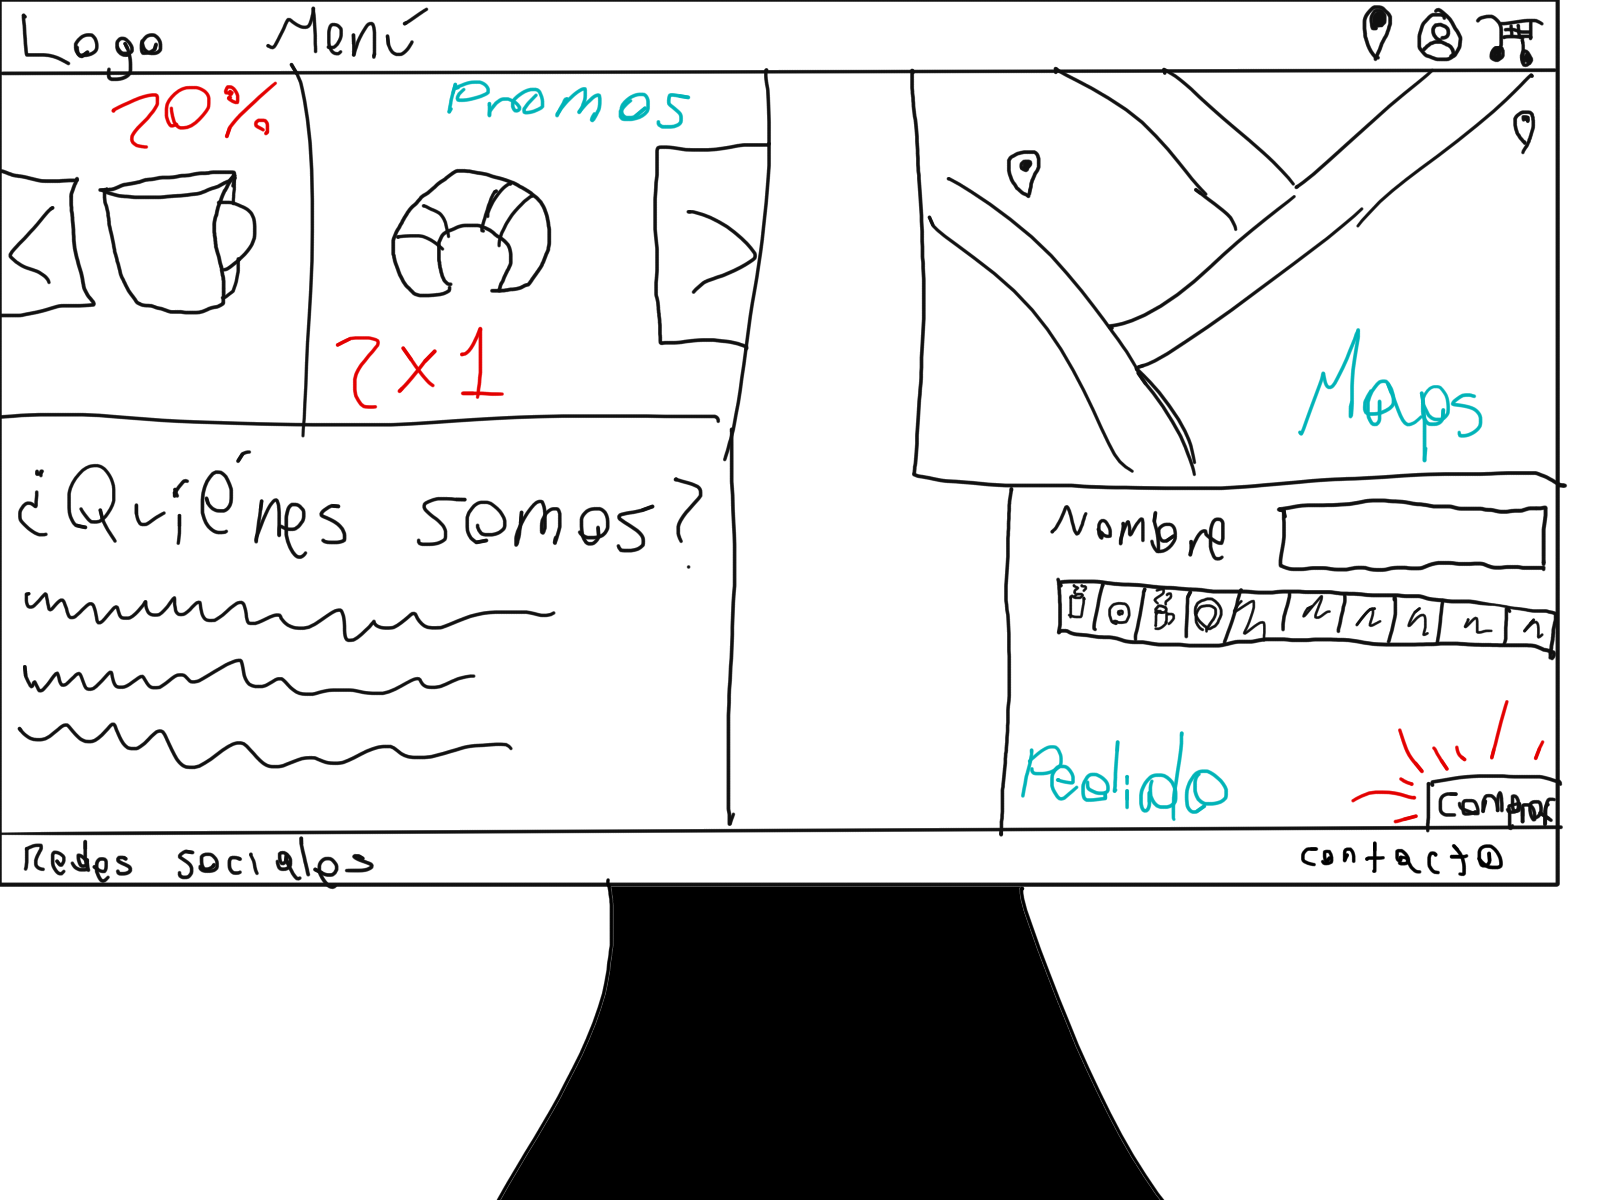 Logo Menú
20% Promos
2x1
Maps
¿Quiénes somos?
Nombre
Pedido
Comprar
Redes sociales contacto